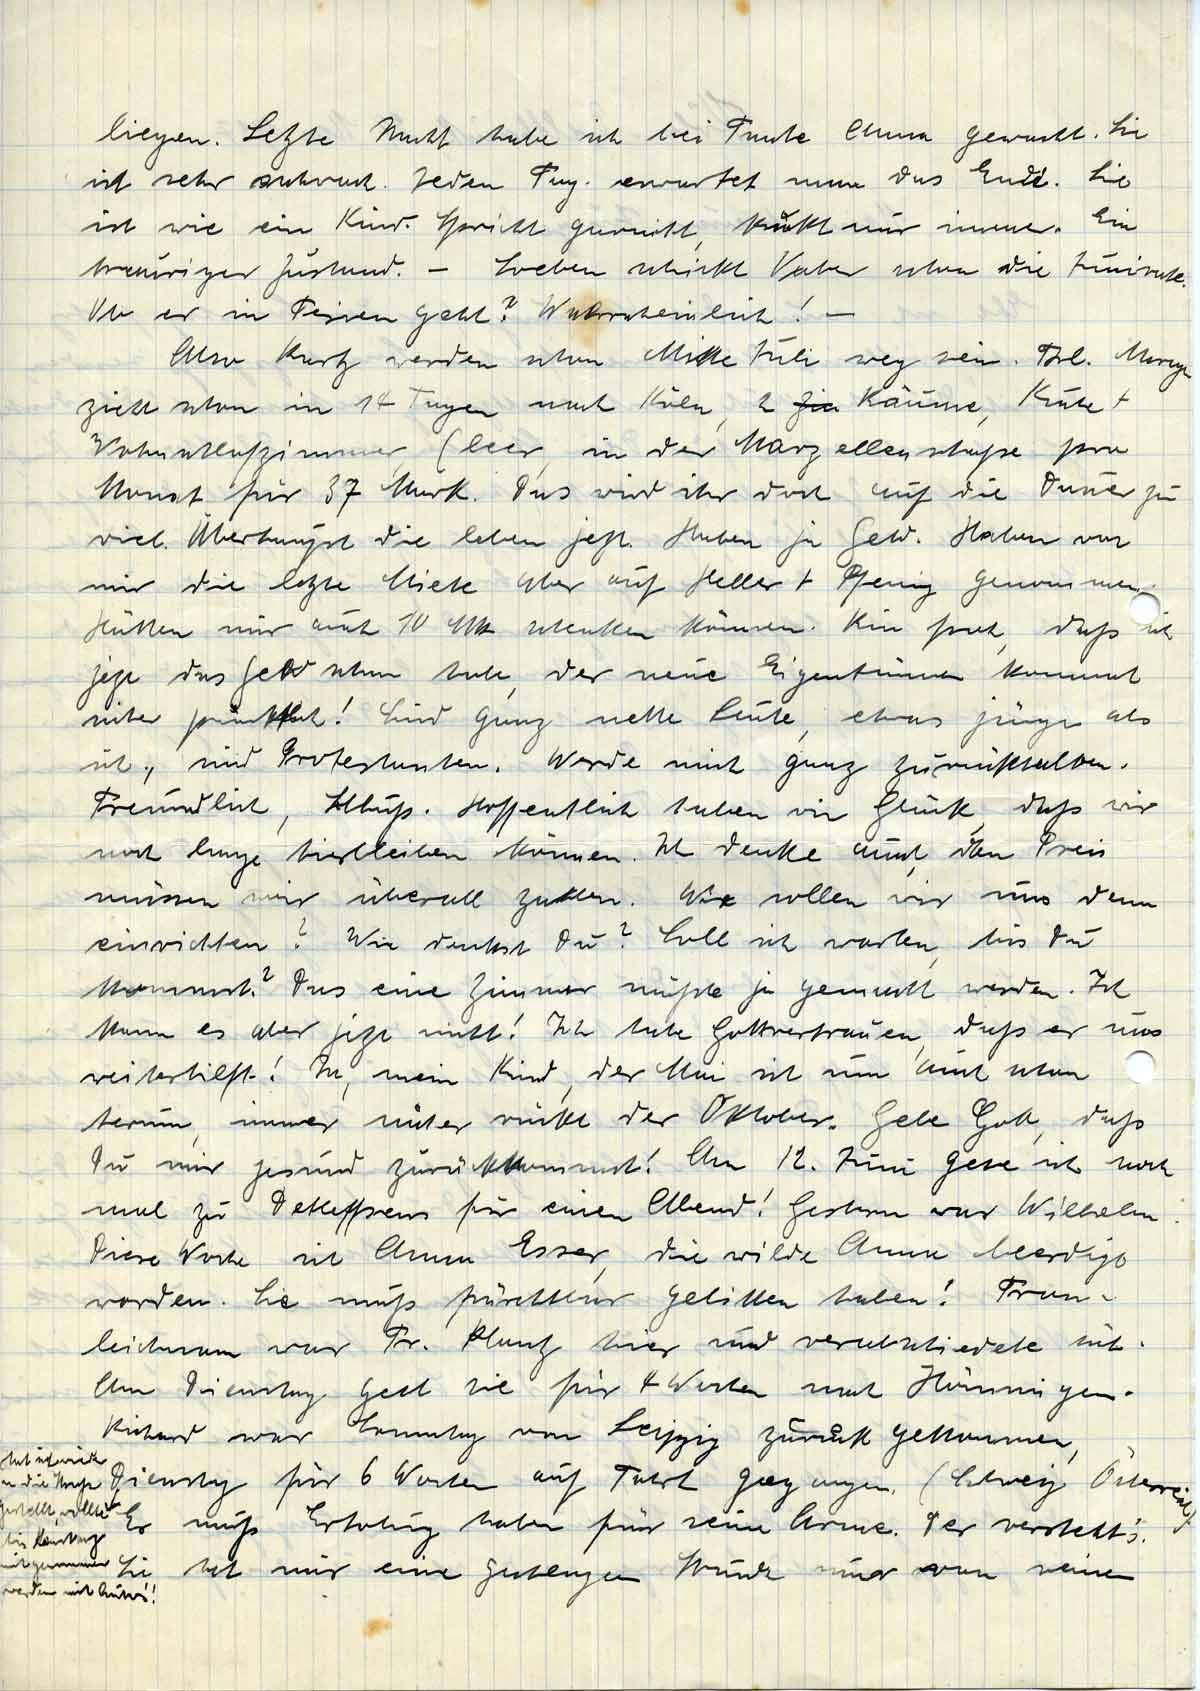 liegen. Letzte Nacht habe ich bei Tante Anna gewacht. Sie
ist sehr schwach. Jeden Tag erwartet man das Ende. Sie
ist wie ein Kind. Spricht garnicht, kukt nur immer. Ein
trauriger Zustand. – Soeben schickt Vater schon die Junirate.
Ob er in Ferien geht? Wahrscheinlich! –
Also Kurtz werden schon Mitte Juli weg sein. Frl.
zieht schon in 14 Tagen nach Köln, 2 Räume, Küche +
Wohnschlafzimmer, (leer, in der Marzellenstraße pro
Monat für 37 Mark. Das wird ihr doch auf die Dauer zu
viel. Überhaupt die leben jetzt. Haben ja Geld. Haben von
mir die letzte Miete aber auf Heller + Pfenig genommen.
Hätten mir auch 10 Mk schenken können. Bin froh, daß ich
jetzt das Geld schon habe, der neue Eigentümer kommt
sicher pünktlich! Sind ganz nette Leute, etwas jünger als
ich, sind Protestanten. Werde mich ganz zurückhalten.
Freundlich, Schluß. Hoffentlich haben wir Glück, daß wir
noch lange hierbleiben können. Ich denke auch, den Preis
müssen wir überall zahlen. Wie sollen wir uns denn
einrichten? Wie denkst Du? Soll ich warten, bis Du
kommst? Das eine Zimmer müßte ja gemacht werden. Ich
kann es aber jetzt nicht! Ich habe Gottvertrauen, daß er uns
weiterhilft! Ja, mein Kind, der Mai ist nun auch schon
herum, immer näher rückt der Oktober. Gebe Gott, daß
Du mir gesund zurückkommst! Am 12. Juni gehe ich noch
mal zu Detleffsens für einen Abend! Gestern war Wilhelm.
Diese Woche ist Anna Esser, die wilde Anna beerdigt
worden. Sie muß furchtbar gelitten haben! Fron-
leichnam war Fr. Klantz hier und verabschiedete sich.
Am Dienstag geht sie für 4 Wochen nach Hönningen.
Richard war Sonntag von Leipzig zurück gekommen,
Dienstag für 6 Wochen auf Fahrt gegangen. (Schweiz, Österreich)
Er muß Erholung haben für seine Arme. Der versteht's.
Sie hat mir eine gestangen Stunde nur von seinen
hat sich nicht
an die Straße
gestellt, wollte
bis Hamburg
mitgenommen
werden mit Autos!!